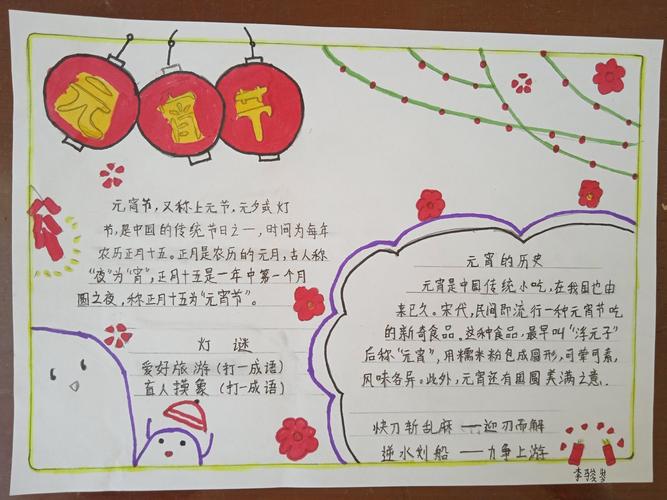 元宵节
元宵节，又称上元节，元夕或灯
节，是中国的传统节日之一，时间为每年
农历正月十五。正月是农历的元月，古人称
“夜”为“宵”，正月十五是一年中第一个月
圆之夜，称正月十五为“元宵节”。
灯谜
爱好旅游（打一成语）
盲人摸象（打一成语）
元宵的历史
元宵是中国传统小吃，在我国也由
来已久。宋代，民间即流行一种元宵节吃
的新奇食品。这种食品，最早叫“浮元子”
后称“元宵”，用糯米粉包成圆形，可荤可素，
风味各异。此外，元宵还有团圆美满之意.
快刀斩乱麻——迎刃而解
逆水划船——力争上游
李骏